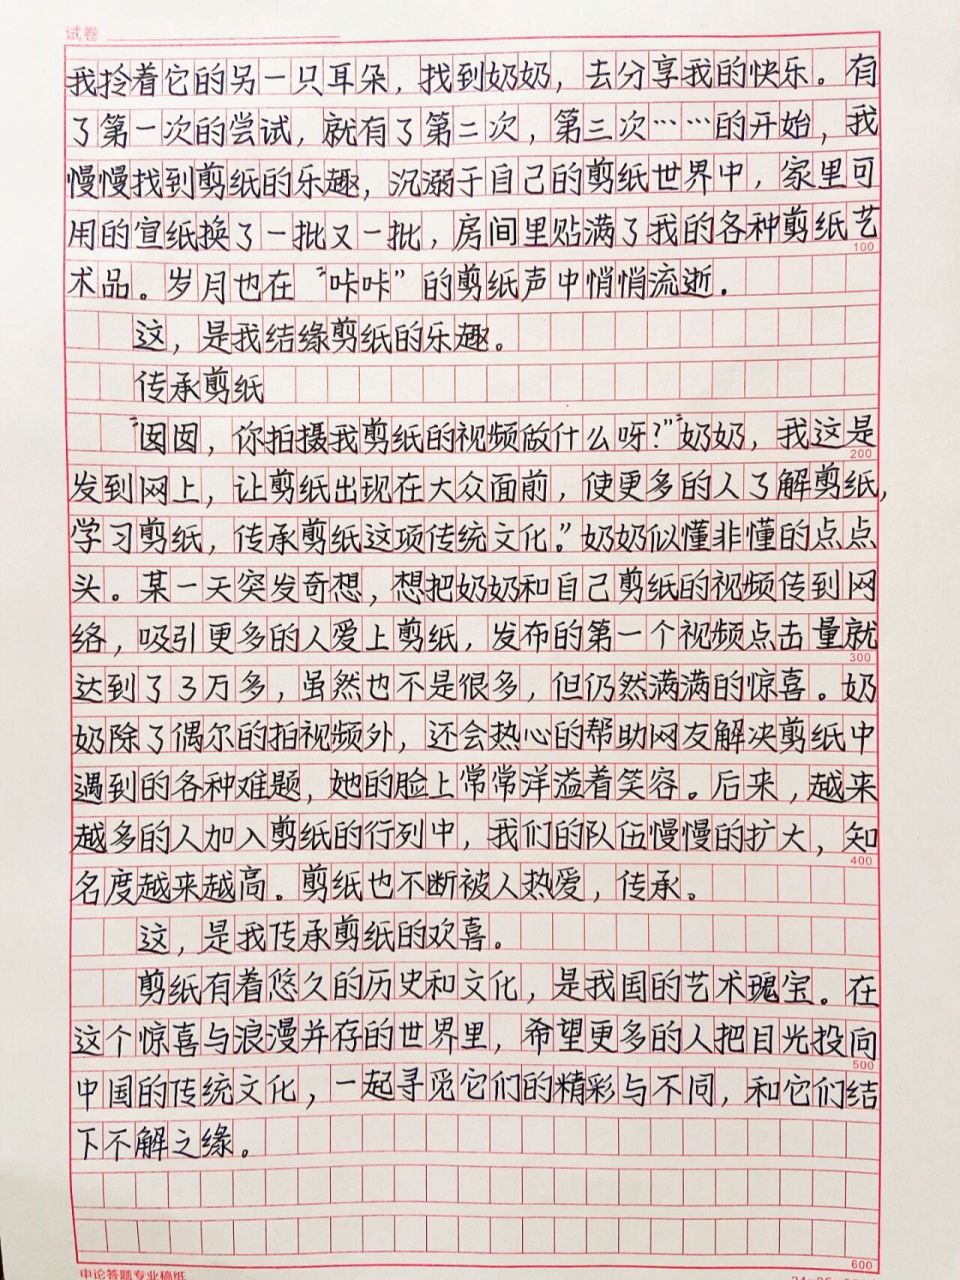 试卷
我拎着它的另一只耳朵，找到奶奶，去分享我的快乐。有
了第一次的尝试，就有了第二次，第三次……的开始，我
慢慢找到剪纸的乐趣，沉溺于自己的剪纸世界中，家里可
用的宣纸换了一批又一批，房间里贴满了我的各种剪纸艺
100
术品。岁月也在“咔咔”的剪纸声中悄悄流逝.
这，是我结缘剪纸的乐趣。
传承剪纸
“囡囡，你拍摄我剪纸的视频做什么呀?”“奶奶，我这是
200
发到网上，让剪纸出现在大众面前，使更多的人了解剪纸，
学习剪纸，传承剪纸这项传统文化。”奶奶似懂非懂的点点
头。某一天突发奇想，想把奶奶和自己剪纸的视频传到网
络，吸引更多的人爱上剪纸，发布的第一个视频点击量就
300
达到了3万多，虽然也不是很多，但仍然满满的惊喜。奶
奶除了偶尔的拍视频外，还会热心的帮助网友解决剪纸中
遇到的各种难题，她的脸上常常洋溢着笑容。后来，越来
越多的人加入剪纸的行列中，我们的队伍慢慢的扩大，知
400
名度越来越高。剪纸也不断被人热爱，传承。
这，是我传承剪纸的欢喜。
剪纸有着悠久的历史和文化，是我国的艺术瑰宝。在
这个惊喜与浪漫并存的世界里，希望更多的人把目光投向
500
中国的传统文化，一起寻觅它们的精彩与不同，和它们结
下不解之缘。
600
申论答题专业稿纸